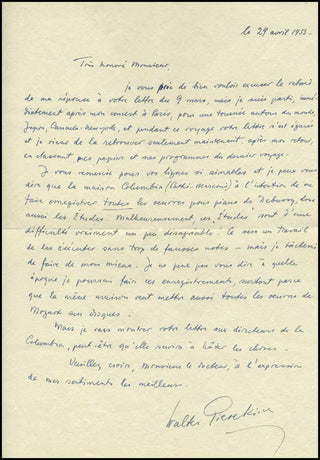 le 29 avril 1953.
Très honoré Monsieur,
je vous prie de bien vouloir excuser le retard
de ma réponse à votre lettre du 9 mars, mais je suis parti, immé-
diatement après mon concert à Paris, pour une tournée autour du monde,
Japon, Canada - Newyork, et pendant ce voyage votre lettre s'est égarée
et je viens de la retrouver seulement maintenant, après mon retour,
en classant mes papiers et mes programmes du dernier voyage.
Je vous remercie pour vos lignes si aimables et je peux vous
dire que la maison Columbia (Pathé-Marconi) a l'intention de me
faire enregistrer toutes les œuvres pour piano de Debussy, donc
aussi les Etudes. Malheureusement, ces Etudes sont d'une
difficulté vraiment un peu désagréable: ce sera un travail
de les exécuter sans trop de fausses notes — mais je tâcherai
de faire de mon mieux. Je ne peux pas vous dire à quelle
époque je pourrai faire ces enregistrements, surtout parce
que la même maison veut mettre aussi toutes les œuvres de
Mozart sur disques.
Mais je vais montrer votre lettre aux directeurs de la
Columbia, peut être qu'elle servira à hâter les choses.
Veuillez croire, Monsieur le Docteur, à l'expression
de mes sentiments les meilleurs.
Walter Gieseking